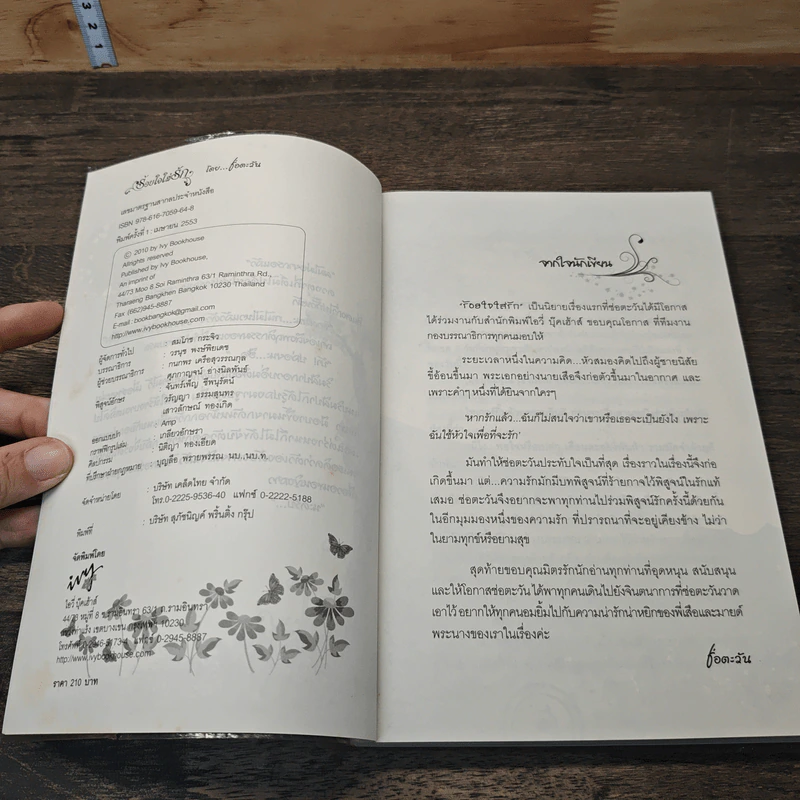 3 2 1
ร้อยใจใส่รัก โดย...ช่อตะวัน
เลขมาตรฐานสากลประจำหนังสือ
ISBN 978-616-7059-64-8
พิมพ์ครั้งที่ 1 : เมษายน 2553
© 2010 by Ivy Bookhouse
Allrights reserved
Published by Ivy Bookhouse,
An imprint of
44/73 Moo 8 Soi Raminthra 63/1 Ramintra Rd.,
Tharaeng Bangkhen Bangkok 10230 Thailand
Fax (662)945-8887
E-mail : bookbangkok@gmail.com
http://www.ivybookhouse.com
ผู้จัดการทั่วไป : สมโชช กระจิว
บรรณาธิการ : วรนุช พงษ์พิยเดช
ผู้ช่วยบรรณาธิการ : กนกพร เครือสุวรรณกุล
ศุภกาญจน์ ย่างนิลพันธ์
จันทร์เพ็ญ ชีพนุรัตน์
พิสูจน์อักษร : วรัญญา ธรรมสุนทร
เสาวลักษณ์ ทองเกิด
ออกแบบปก : Amp
กราฟฟิครูปเล่ม : เกลียวอักษรา
ศิลปกรรม : นิติญา ทองเอียด
ที่ปรึกษาด้านกฎหมาย : บุญลือ พรายพรรณ นบ.,นบ.ท.
จัดจำหน่ายโดย : บริษัท เคล็ดไทย จำกัด
โทร.0-2225-9536-40 แฟกซ์ 0-2222-5188
พิมพ์ที่ : บริษัท สุภัชนิญค์ พริ้นติ้ง กรุ๊ป
จัดพิมพ์โดย
ivy
ไอวี่ บุ๊คเฮ้าส์
44/73 หมู่ที่ 8 ซ.รามอินทรา 63/1 ถ.รามอินทรา
แขวงท่าแร้ง เขตบางเขน กรุงเทพฯ 10230
แฟกซ์ 0-2945-8887
http://www.ivybookhouse.com
ราคา 210 บาท
จากใจนักเขียน
'ร้อยใจใส่รัก' เป็นนิยายเรื่องแรกที่ช่อตะวันได้มีโอกาส
ได้ร่วมงานกับสำนักพิมพ์ไอวี่ บุ๊คเฮ้าส์ ขอบคุณโอกาส ที่ทีมงาน
กองบรรณาธิการทุกคนมอบให้
ระยะเวลาหนึ่งในความคิด...หัวสมองคิดไปถึงผู้ชายนิสัย
ขี้อ้อนขึ้นมา พระเอกอย่างนายเสือจึงก่อตัวขึ้นมาในอากาศ และ
เพราะคำๆ หนึ่งที่ได้ยินจากใครๆ
'หากรักแล้ว...ฉันก็ไม่สนใจว่าเขาหรือเธอจะเป็นยังไง เพราะ
ฉันใช้หัวใจเพื่อที่จะรัก'
มันทำให้ช่อตะวันประทับใจเป็นที่สุด เรื่องราวในเรื่องนี้จึงก่อ
เกิดขึ้นมา แต่...ความรักมักมีบทพิสูจน์ที่ร้ายกาจไว้พิสูจน์ในรักแท้
เสมอ ช่อตะวันจึงอยากจะพาทุกท่านไปร่วมพิสูจน์รักครั้งนี้ด้วยกัน
ในอีกมุมมองหนึ่งของความรัก ที่ปรารถนาที่จะอยู่เคียงข้าง ไม่ว่า
ในยามทุกข์หรือยามสุข
สุดท้ายขอบคุณมิตรรักนักอ่านทุกท่านที่อุดหนุน สนับสนุน
และให้โอกาสช่อตะวันได้พาทุกคนเดินไปยังจินตนาการที่ช่อตะวันวาด
เอาไว้ อยากให้ทุกคนอมยิ้มไปกับความน่ารักน่าหยิกของพี่เสือและมายด์
พระนางของเราในเรื่องค่ะ
ช่อตะวัน